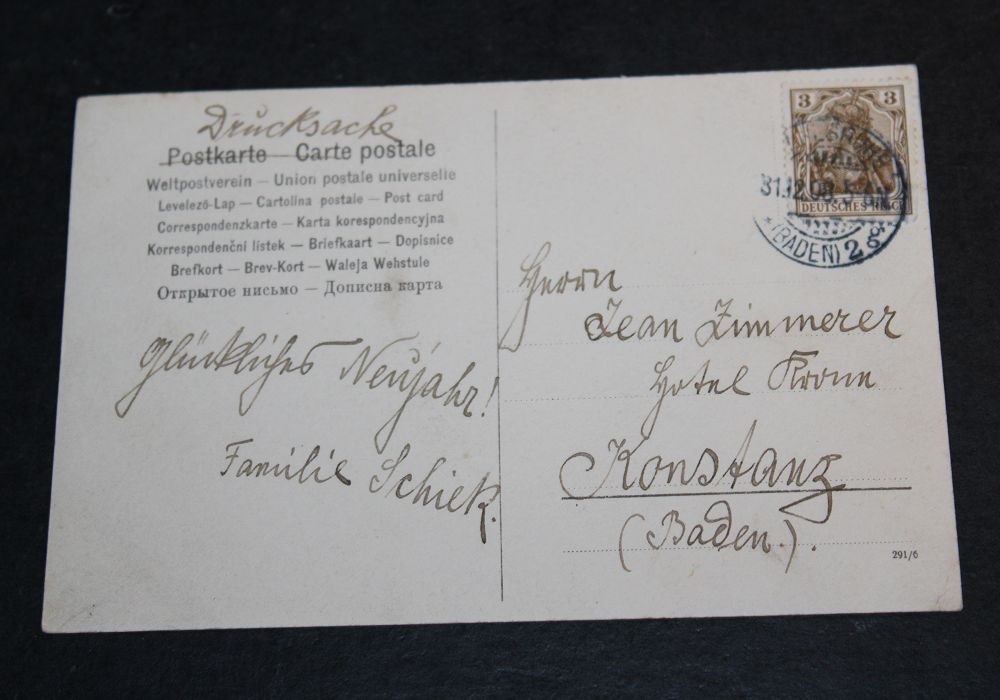 Drucksache
Postkarte – Carte postale
Weltpostverein – Union postale universelle
Levelező-Lap – Cartolina postale – Post card
Correspondenzkarte – Karta korespondencyjna
Korrespondenční lístek – Briefkaart – Dopisnice
Brefkort – Brev-Kort – Waleja Wehstule
Открытое письмо – Дописна карта
Glückliches Neujahr!
Familie Schiek.
3 3
DEUTSCHES REICH
31.12.08.5-6
(BADEN) 2g
Herrn
Jean Zimmerer
Hotel Krone
Konstanz
(Baden.).
291/6